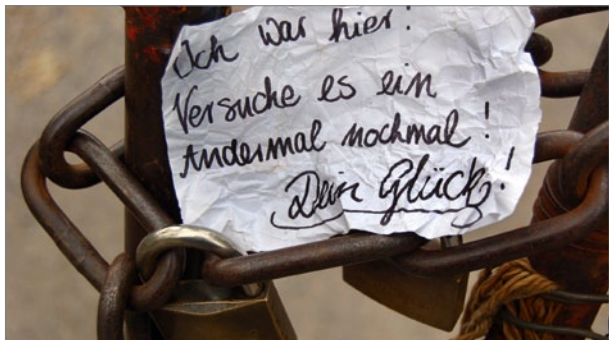 Ich war hier!
Versuche es ein
Andermal nochmal!
Dein Glück!